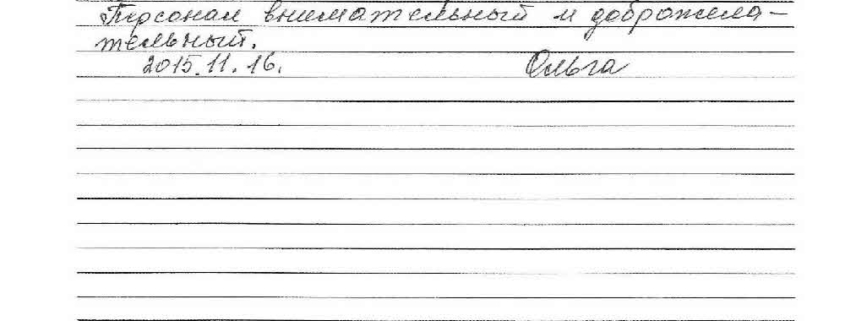 Персонал внимательный и доброжела-
тельный.
2015.11.16. Ольга